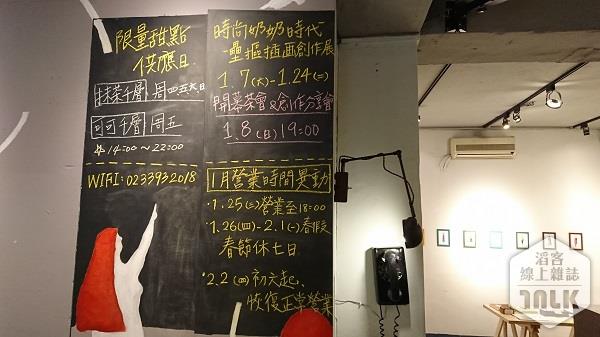 限量甜點
供應日
抹茶千層 周四五六日
可可千層 周五
14:00~22:00
WIFI:0233932018
時尚奶奶時代
壘摳插画創作展
1.7(六)-1.24(二)
開幕茶會&創作分享會
1.8(日)19:00
1月營業時間異動
·1.25(三)營業至18:00
·1.26(四)-2.1(一)春假
春節休七日
·2.2(四)初六起、
恢復正常營業
滔客
線上雜誌
TALK